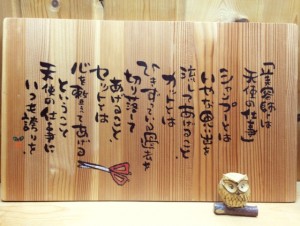 「美容師は
天使の仕事」
シャンプーとは
いやな思い出を
流してあげること
カットとは
ひきずっている過去を
切り落として
あげること
セットとは
心を整えてあげる
ということ
天使の仕事に
いつも誇りを